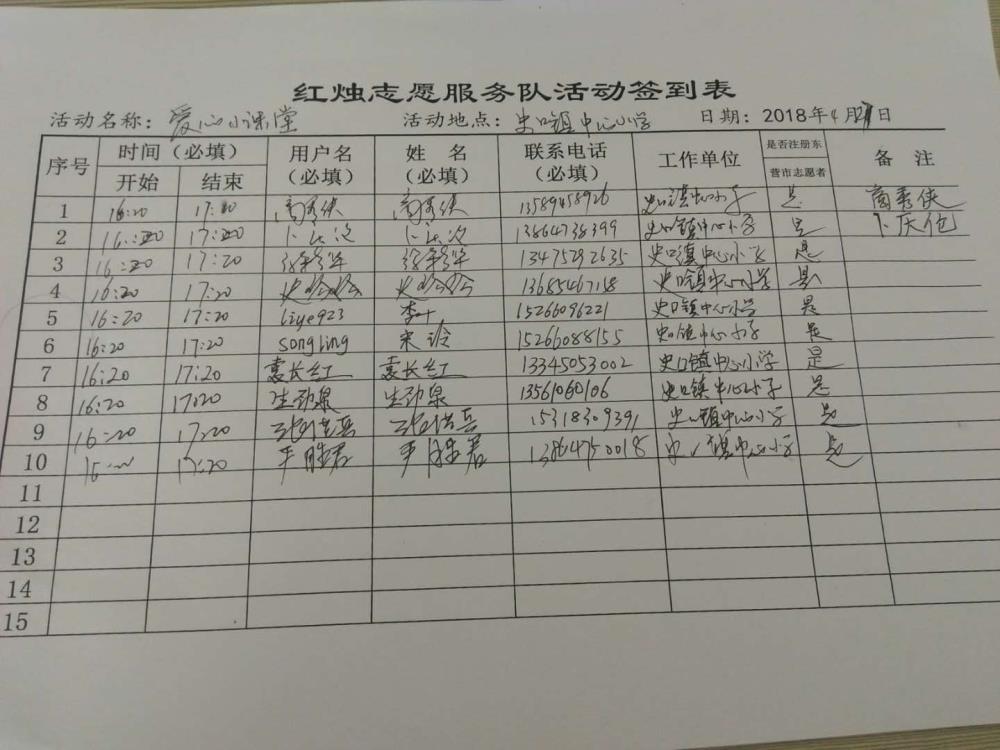 红烛志愿服务队活动签到表
活动名称：爱心小课堂 活动地点：史口镇中心小学 日期：2018年4月 日
序号 时间（必填） 用户名（必填） 姓 名（必填） 联系电话（必填） 工作单位 是否注册东营市志愿者 备 注
开始 结束
1 16:20 17:20 商秀侠 商秀侠 13589458926 史口镇中心小学 是 商秀侠
2 16:20 17:20 13864738399 史口镇中心小学 是
3 16:20 17:20 13475292635 史口镇中心小学 是
4 16:20 17:20 13685467118 史口镇中心小学 是
5 16:20 17:20 liye923 李叶 15266096221 史口镇中心小学 是
6 16:20 17:20 songling 宋玲 15266088155 史口镇中心小学 是
7 16:20 17:20 袁长红 袁长红 13345053002 史口镇中心小学 是
8 16:20 17:20 生劲泉 生劲泉 13561060106 史口镇中心小学 是
9 16:20 17:20 15318309391 史口镇中心小学 是
10 17:20 13864750018 史口镇中心小学 是
11
12
13
14
15